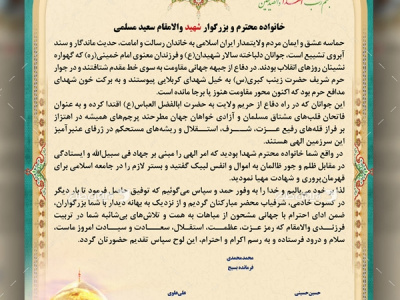 خانواده محترم و بزرگوار شهید والامقام سعید مسلمی
حماسه عشق و ایمان مردم ولایتمدار ایران اسلامی به خاندان رسالت و امامت، حدیث ماندگار و سند
آبروی تشییع است. جوانان دلباخته سالار شهیدان(ع) و فرزندان معنوی امام خمینی(ره) که گهواره
نشینان روزهای انقلاب بودند. در دفاع از جبهه جهانی مقاومت به سوی خط مقدم شتافتند و در جوار
حرم شریف حضرت زینب کبری(س) به خیل شهدای کربلایی پیوستند و به برکت خون شهدای
مدافع حرم بود که اکنون محور مقاومت هنوز پا برجا مانده است.
این جوانان که در راه دفاع از حریم ولایت به حضرت ابالفضل العباس(ع) اقتدا کرده و به عنوان
فاتحان قلب‌های مشتاق مسلمان و آزادی خواهان جهان مطرحند پرچم‌های همیشه در اهتزاز
بر فراز قله‌های رفیع عزت، شرف، استقلال و ریشه‌های مستحکم در ژرفای عنبر آمیز
این سرزمین الهی هستند.
در واقع شما خانواده محترم شهدا بودید که امر الهی را مبنی بر جهاد فی سبیل‌الله و ایستادگی
در مقابل ظلم و جور ظالمان به اموال و انفس لبیک گفتید و بستر لازم را در جامعه اسلامی برای
قهرمان‌پروری و شهادت مهیا نمودید.
لذا بر خود می‌بالیم و خدا را به وفور حمد و سپاس می‌گوئیم که توفیق حاصل فرمود تا بار دیگر
در کسوت خادمی، شرفیاب محضر مبارکتان گردیم و از نزدیک به بهانه دیدار با شما بزرگواران،
ضمن ادای احترام با جهانی مشحون از مباهات به همت و تلاش‌های بی‌شائبه شما در تربیت
فرزندی والامقام که رمز عزت، عظمت، استقلال، سعادت و سیادت امروز ماست،
سلام و درود فرستاده و به رسم اکرام و احترام، این لوح سپاس تقدیم حضورتان گردد.
محمدمحمدی
فرمانده بسیج
حسین حسینی
علی علوی